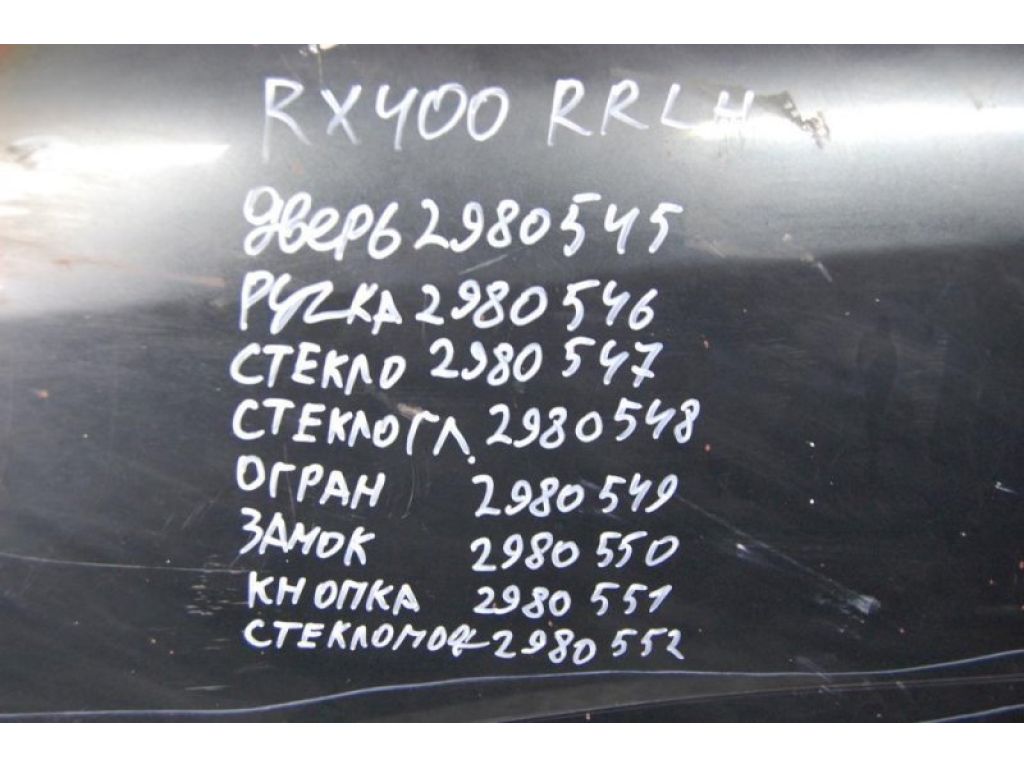 RX400 RRLH
дверь 2980545
РУЧКА 2980546
СТЕКЛО 2980547
СТЕКЛО ГЛ. 2980548
ОГРАН 2980549
ЗАМОК 2980550
КНОПКА 2980551
СТЕКЛОПОД 2980552